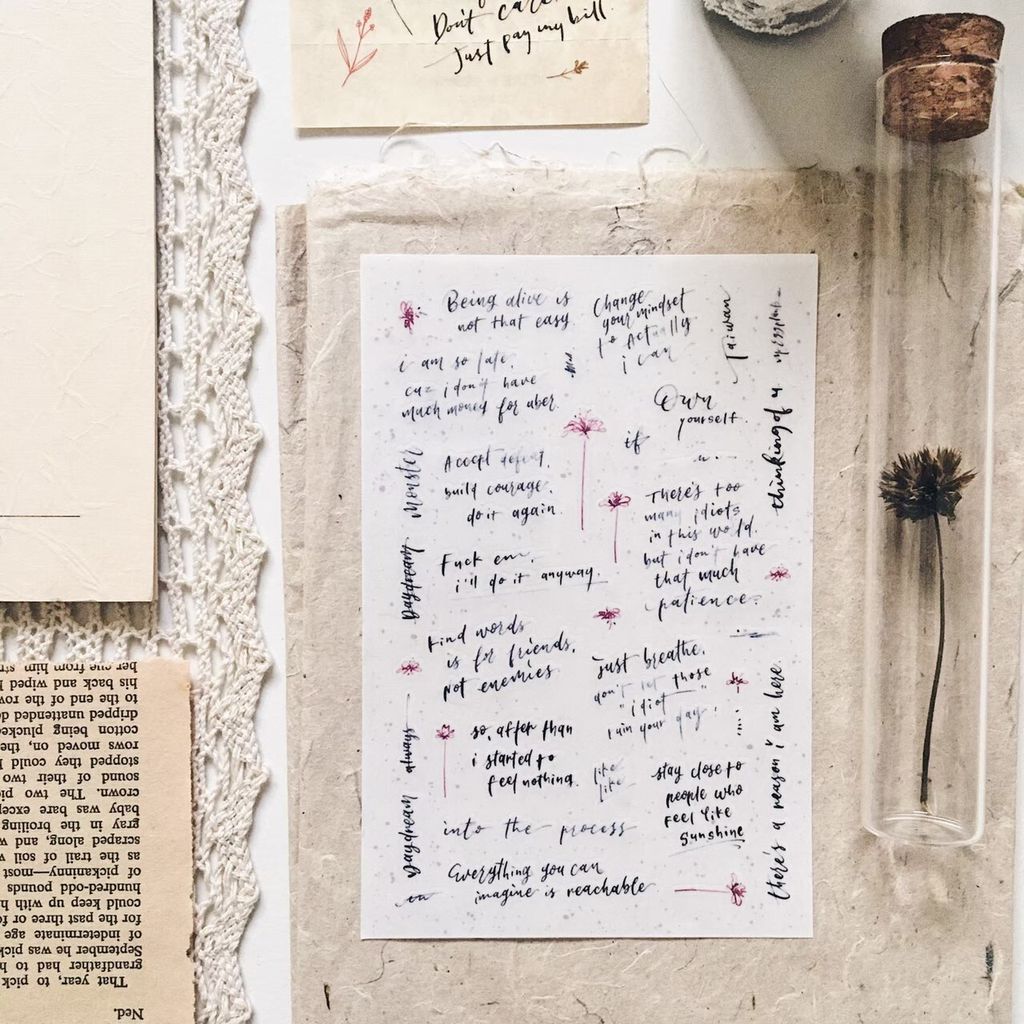 Don't care
Just pay my bill.
Being alive is
not that easy
Change
your mindset
to Actually
i can
Taiwan
i am so late,
cuz i don't have
much money for uber.
Own
yourself.
if
thinking of u
Monster
Accept defeat,
build courage,
do it again.
There's too
many idiots
in this world.
but i don't have
that much
patience.
Daydream
Fuck em.
i'll do it anyway
Kind words
is for friends,
not enemies
Just breathe,
don't let those
"idiot"
ruin your day.
there's a reason i am here.
always
so, after than
i started to
feel nothing.
like
like
stay close to
people who
feel like
sunshine
Daydream
into the process
Everything you can
imagine is reachable
Ned.
That year, to pick
grandfather had to h
September he was pick
of indeterminate age
for the past three or fo
could keep up with h
hundred-odd pounds
of pickaninny—most
as the trail of soil w
scraped along, and w
gray in the broiling
baby was bare excep
crown. The two pic
sound of their two
stopped they could h
rows moved on, the
cotton being plucked
dripped unattended d
to the end of the row
his back and wiped h
her cue from him st